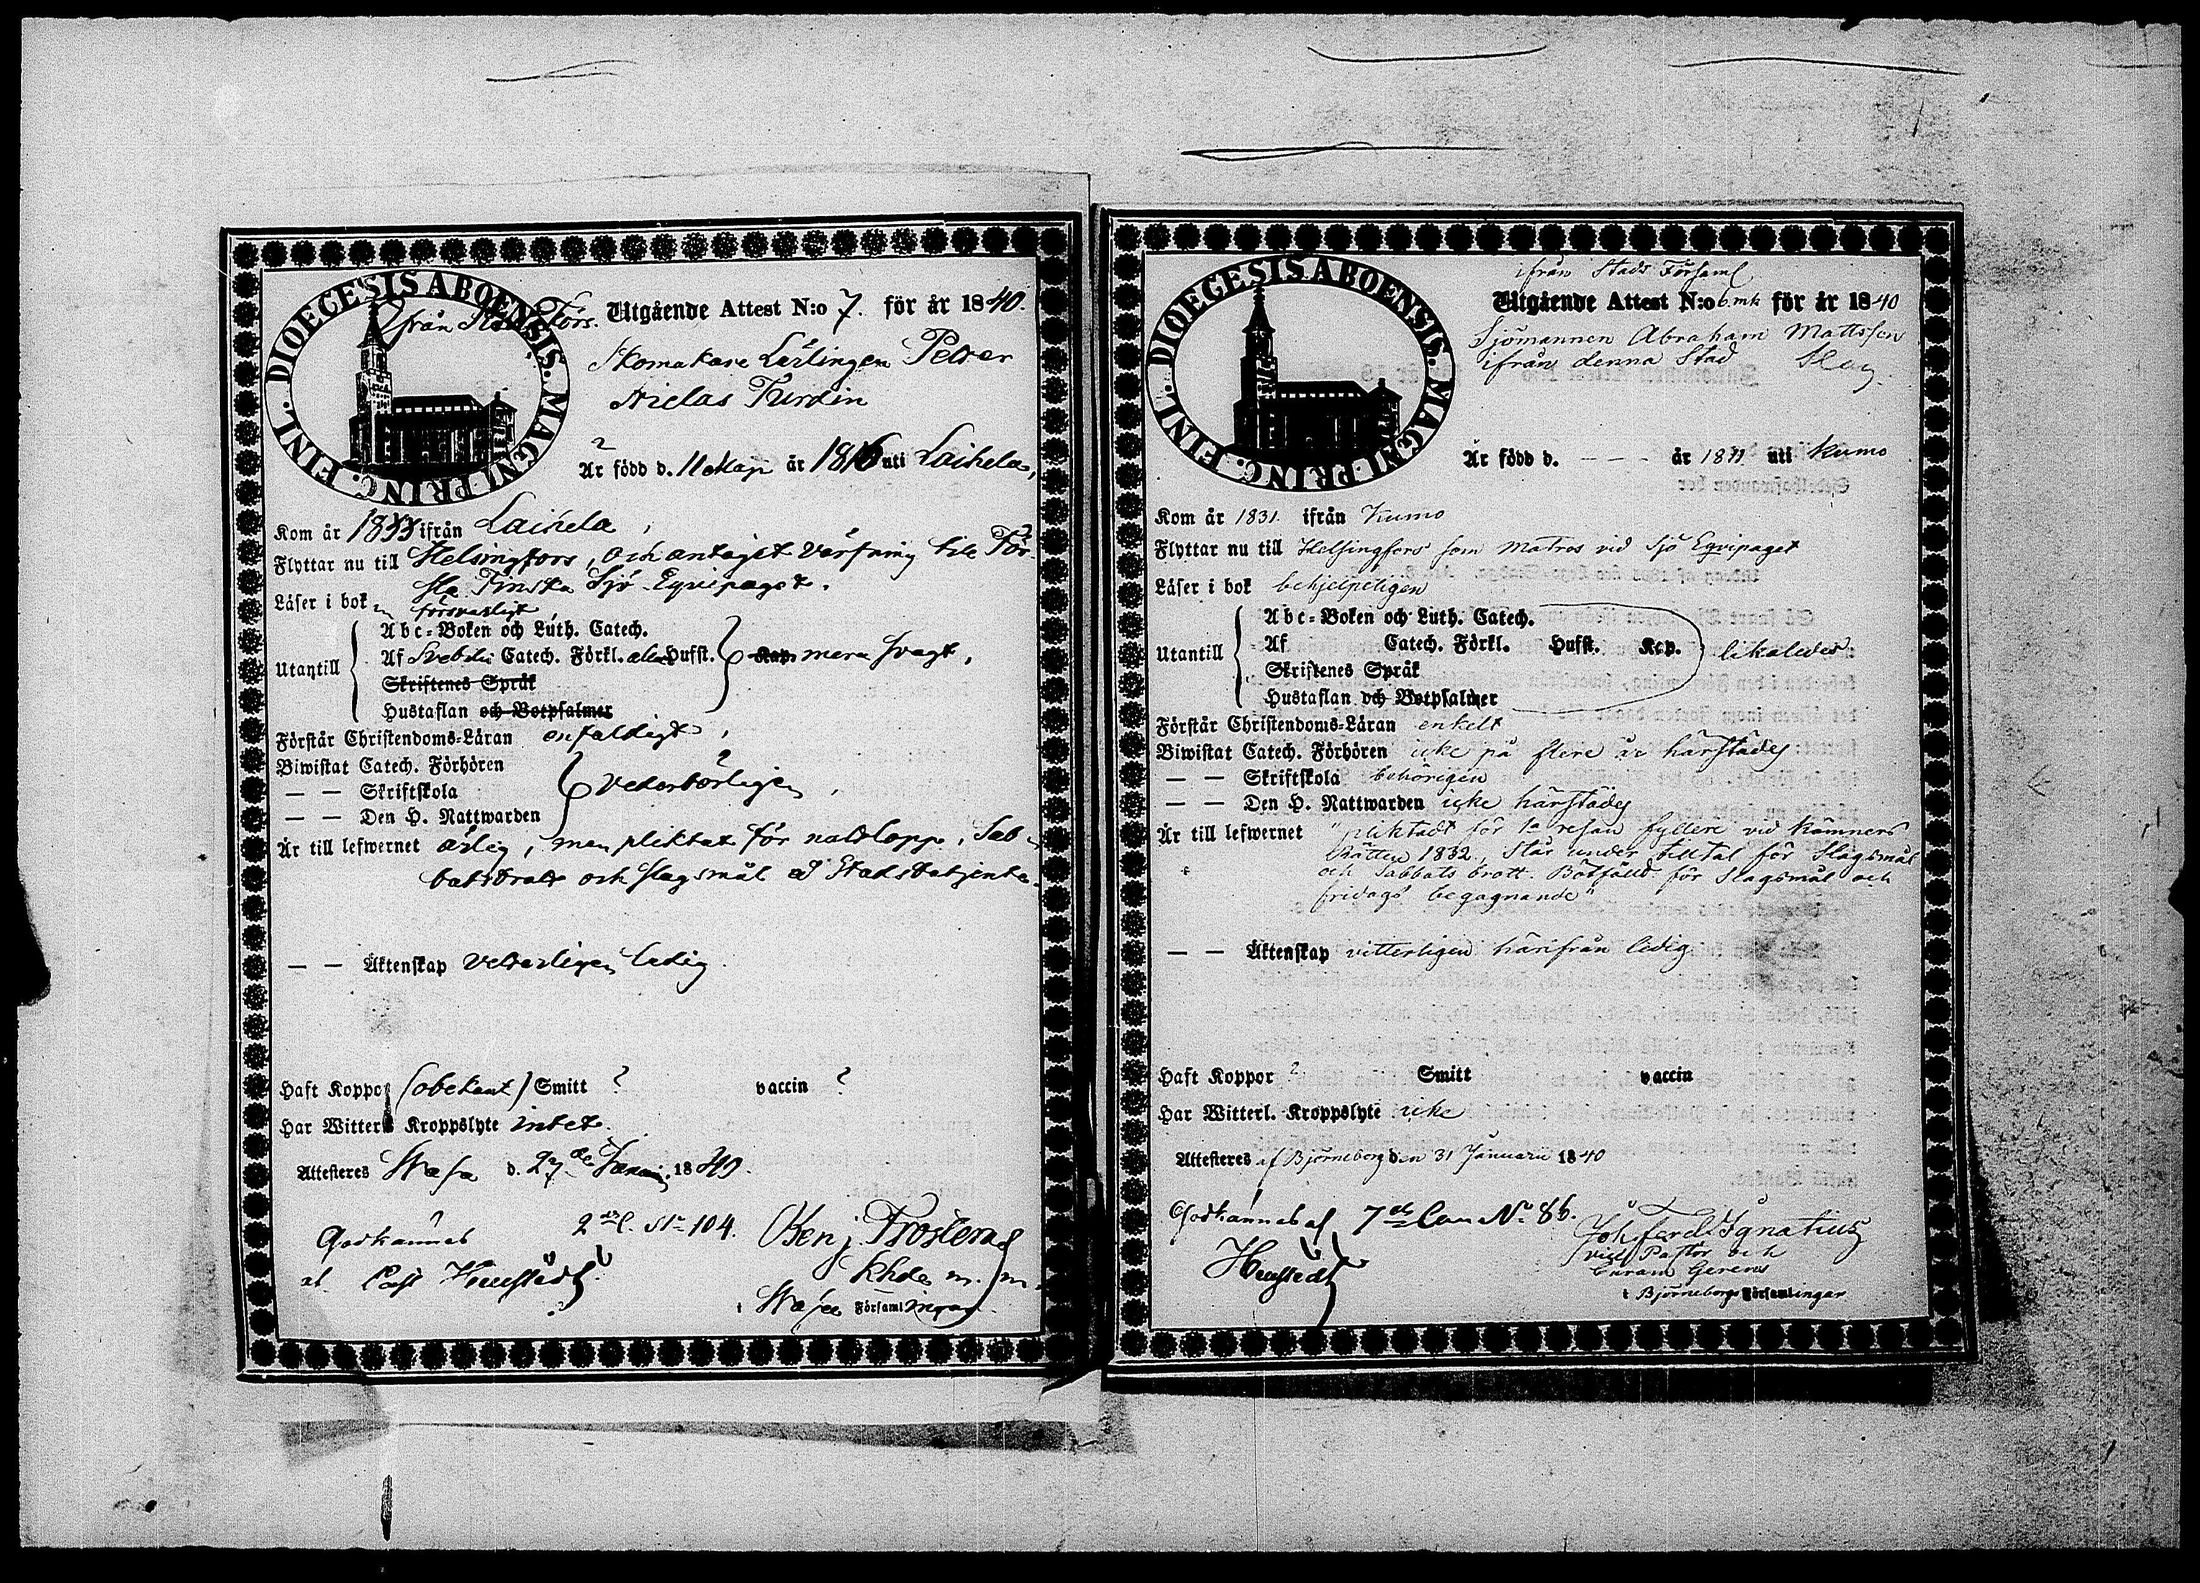 DIOECESIS ABOENSIS. MAGNI PRINC. FINL.
ifrån Stads Förs. Utgående Attest N:o 7. för år 1840.
Skomakare Lärlingen Petter
Niclas Turdin
Är född d. 11 Maji år 1816 uti Laihela,
Kom år 1833 ifrån Laihela,
Flyttar nu till Helsingfors, och antagit Värfning till För-
sta Finska Sjö-Eqvipaget.
Läser i bok försvarligt
Abc-Boken och Luth. Catech.
Utantill Af Svebilii Catech. Förkl. Hufst. Kap. mera svagt,
Skriftenes Språk
Hustaflan och Botpsalmer
Förstår Christendoms-Läran enfaldigt,
Biwistat Catech. Förhören
— — Skriftskola vederbörligen,
— — Den H. Nattwarden
Är till lefwernet ärlig, men pliktat för nattlopp, Sab-
batsbrott och slagsmål å Stadsbetjente.
— — Äktenskap veterligen ledig.
Haft Koppor (obekant) Smitt ? vaccin ?
Har Witterl. Kroppslyte intet.
Attesteres Wasa d. 27de Januarij 1840.
Godkännes 2dra C. No 104. Benj. Frosterus
af Past Hougstedt. Khde m. m.
i Wasa Församlingar.
DIOECESIS ABOENSIS. MAGNI PRINC. FINL.
ifrån Stads Församl
Utgående Attest N:o 6. mk för år 1840
Sjömannen Abraham Mattsson
ifrån denna Stad
Är född d. — — — år 1811 uti Kumo
Kom år 1831. ifrån Kumo
Flyttar nu till Helsingfors som Matros vid Sjö Eqvipaget
Läser i bok behjelpeligen
Abc-Boken och Luth. Catech.
Utantill Af Catech. Förkl. Hufst. Kap. likaledes
Skriftenes Språk
Hustaflan och Botpsalmer
Förstår Christendoms-Läran enkelt
Biwistat Catech. Förhören icke på flere år härstädes
— — Skriftskola behörigen
— — Den H. Nattwarden icke härstädes
Är till lefwernet "pliktadt för 1a resan fylleri vid Kämners
Rätten 1832, Står under tilltal för Slagsmål
och Sabbats brott. Bötfälld för Slagsmål och
fridags begagnande"
— — Äktenskap vitterligen härifrån ledig
Haft Koppor ? Smitt vaccin
Har Witterl. Kroppslyte icke
Attesteres af Björneborg den 31 Januarii 1840
Godkännes af 7de Com No 86. Joh ferd Ignatius
Hougstedt vice Pastor och
Curam Gerens
i Björneborgs Församlingar